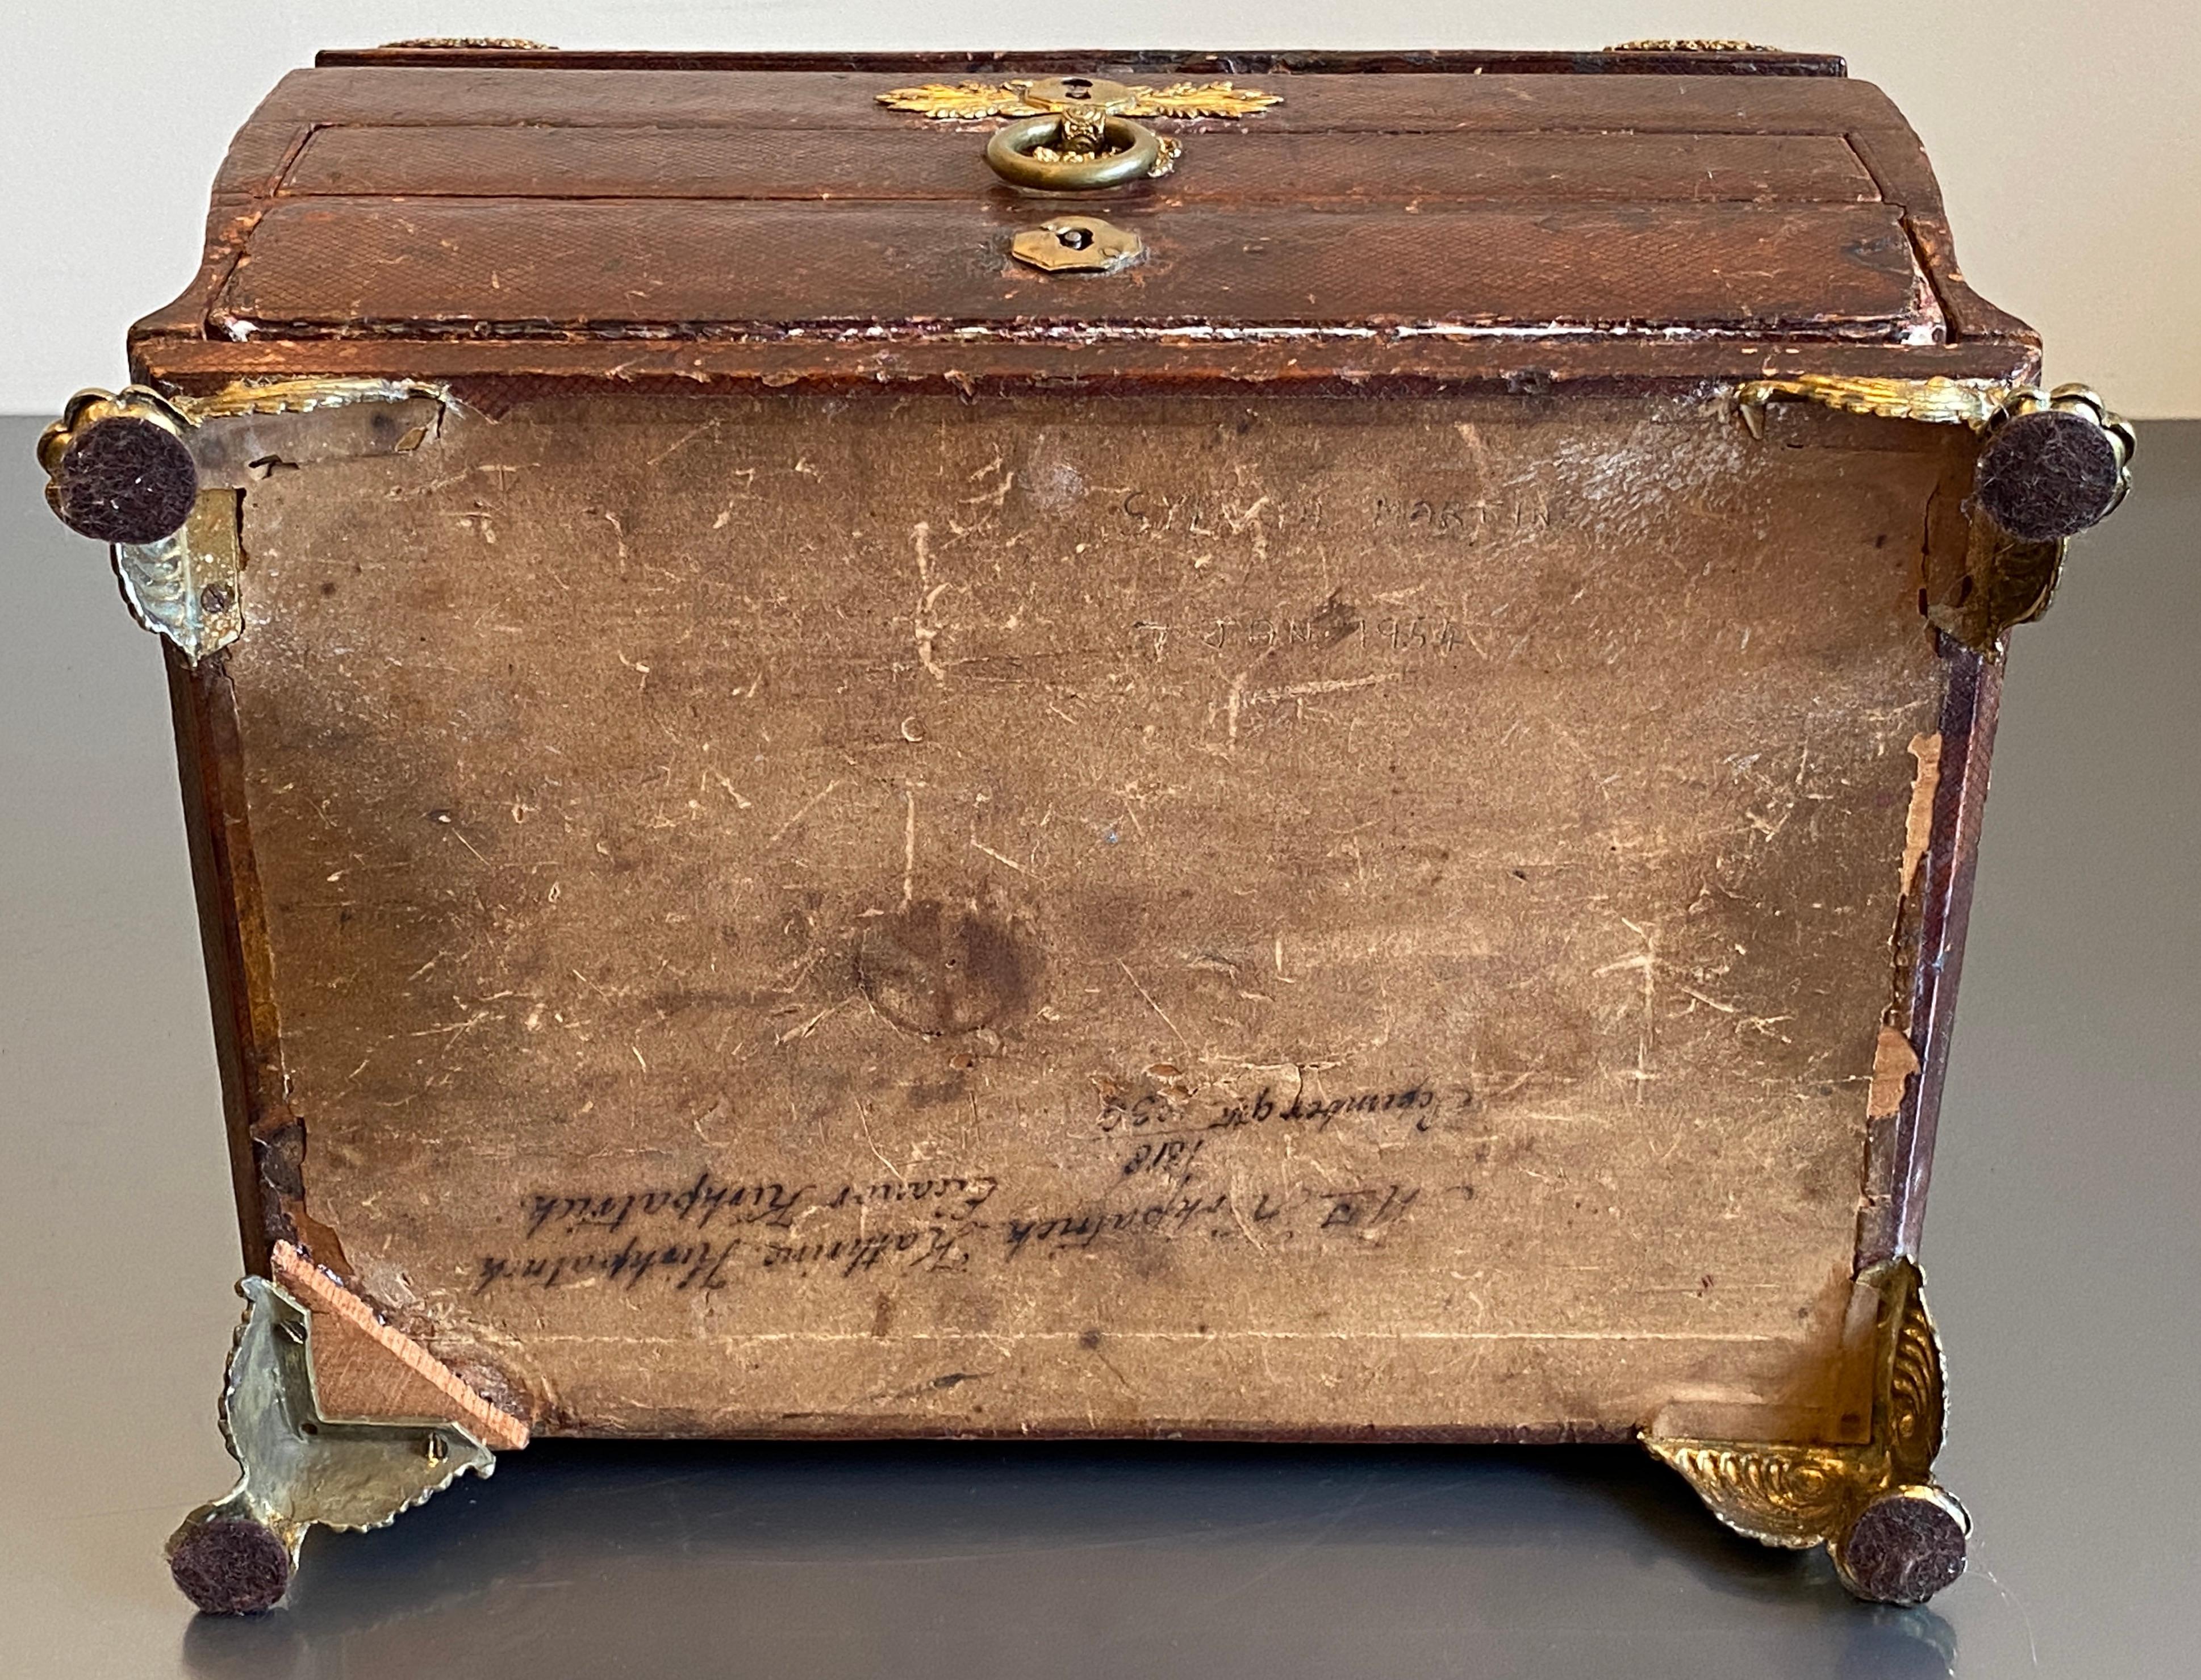 SYLVIA MARTIN
7. JAN. 1954
Kirkpatrick Kathrine Kirkpatrick
1818 Eleanor Kirkpatrick
December 9th